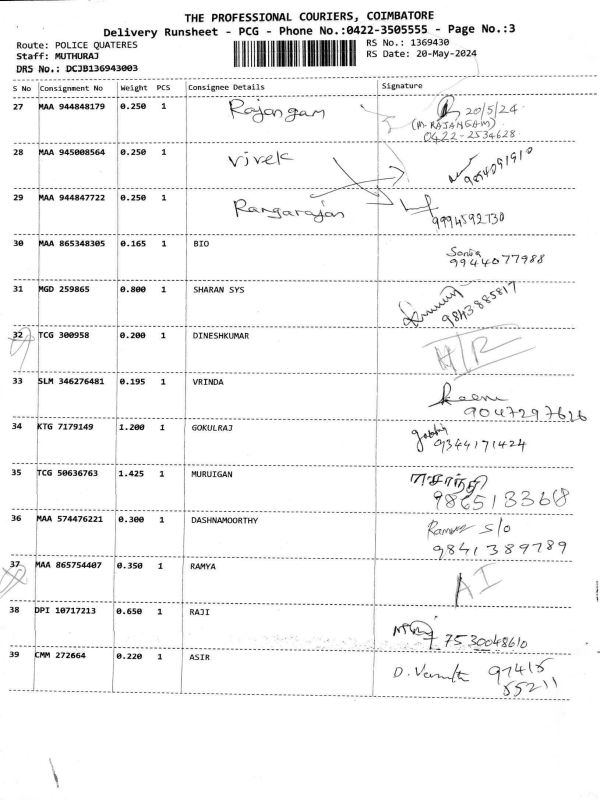 THE PROFESSIONAL COURIERS, COIMBATORE
Delivery Runsheet - PCG - Phone No.:0422-3505555 - Page No.:3
Route: POLICE QUATERES
Staff: MUTHURAJ
DRS No.: DCJB136943003
RS No.: 1369430
RS Date: 20-May-2024
S No Consignment No Weight PCS Consignee Details Signature
27 MAA 944848179 0.250 1 Rajangam 20/5/24
(M. RAJANGAM)
0422-2534628
28 MAA 945008564 0.250 1 Vivek
9054091910
29 MAA 944847722 0.250 1 Rangarajan
9994592730
30 MAA 865348305 0.165 1 BIO Sonia
9944077988
31 MGD 259865 0.800 1 SHARAN SYS
9843885817
32 TCG 300958 0.200 1 DINESHKUMAR H/R
33 SLM 346276481 0.195 1 VRINDA
9047297626
34 KTG 7179149 1.200 1 GOKULRAJ
9344171424
35 TCG 50636763 1.425 1 MURUIGAN
36 MAA 574476221 0.300 1 DASHNAMOORTHY s/o
9841389789
37 MAA 865754407 0.350 1 RAMYA AI
38 DPI 10717213 0.650 1 RAJI
7530048610
39 CMM 272664 0.220 1 ASIR D. 97415
55211